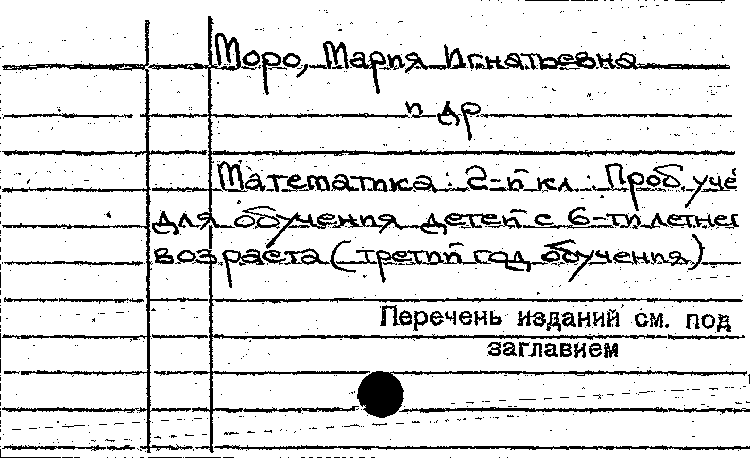 Моро, Мария Игнатьевна
и др
Математика: 2-й кл: Проб. уче
для обучения детей с 6-ти летнег
возраста (третий год обучения)
Перечень изданий см. под
заглавием